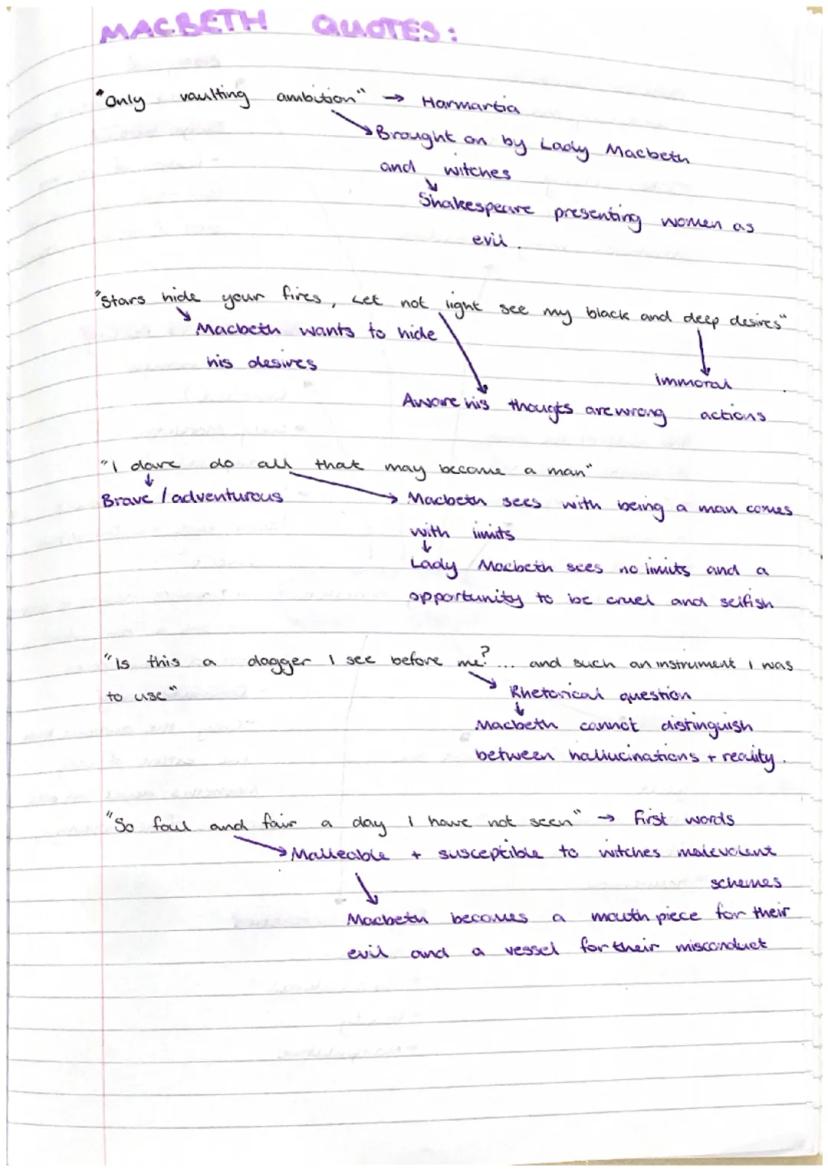 MACBETH QUOTES:
"Only vaulting ambition" → Harmartia
Brought on by Lady Macbeth
and witches
Shakespeare presenting women as
evil.
"Stars hide your fires, Let not light see my black and deep desires"
Macbeth wants to hide
his desires
immoral
Aware his thougts are wrong actions
"I dare do all that may become a man"
Brave / adventurous
Macbeth sees with being a man comes
with limits
Lady Macbeth sees no limits and a
opportunity to be cruel and selfish
"Is this a dagger I see before me? ... and such an instrument I was
to use"
Rhetorical question
Macbeth cannot distinguish
between hallucinations + reality.
"So foul and fair a day I have not seen" → First words
Malleable + susceptible to witches malevolent
schemes
Macbeth becomes a mouth piece for their
evil and a vessel for their misconduct